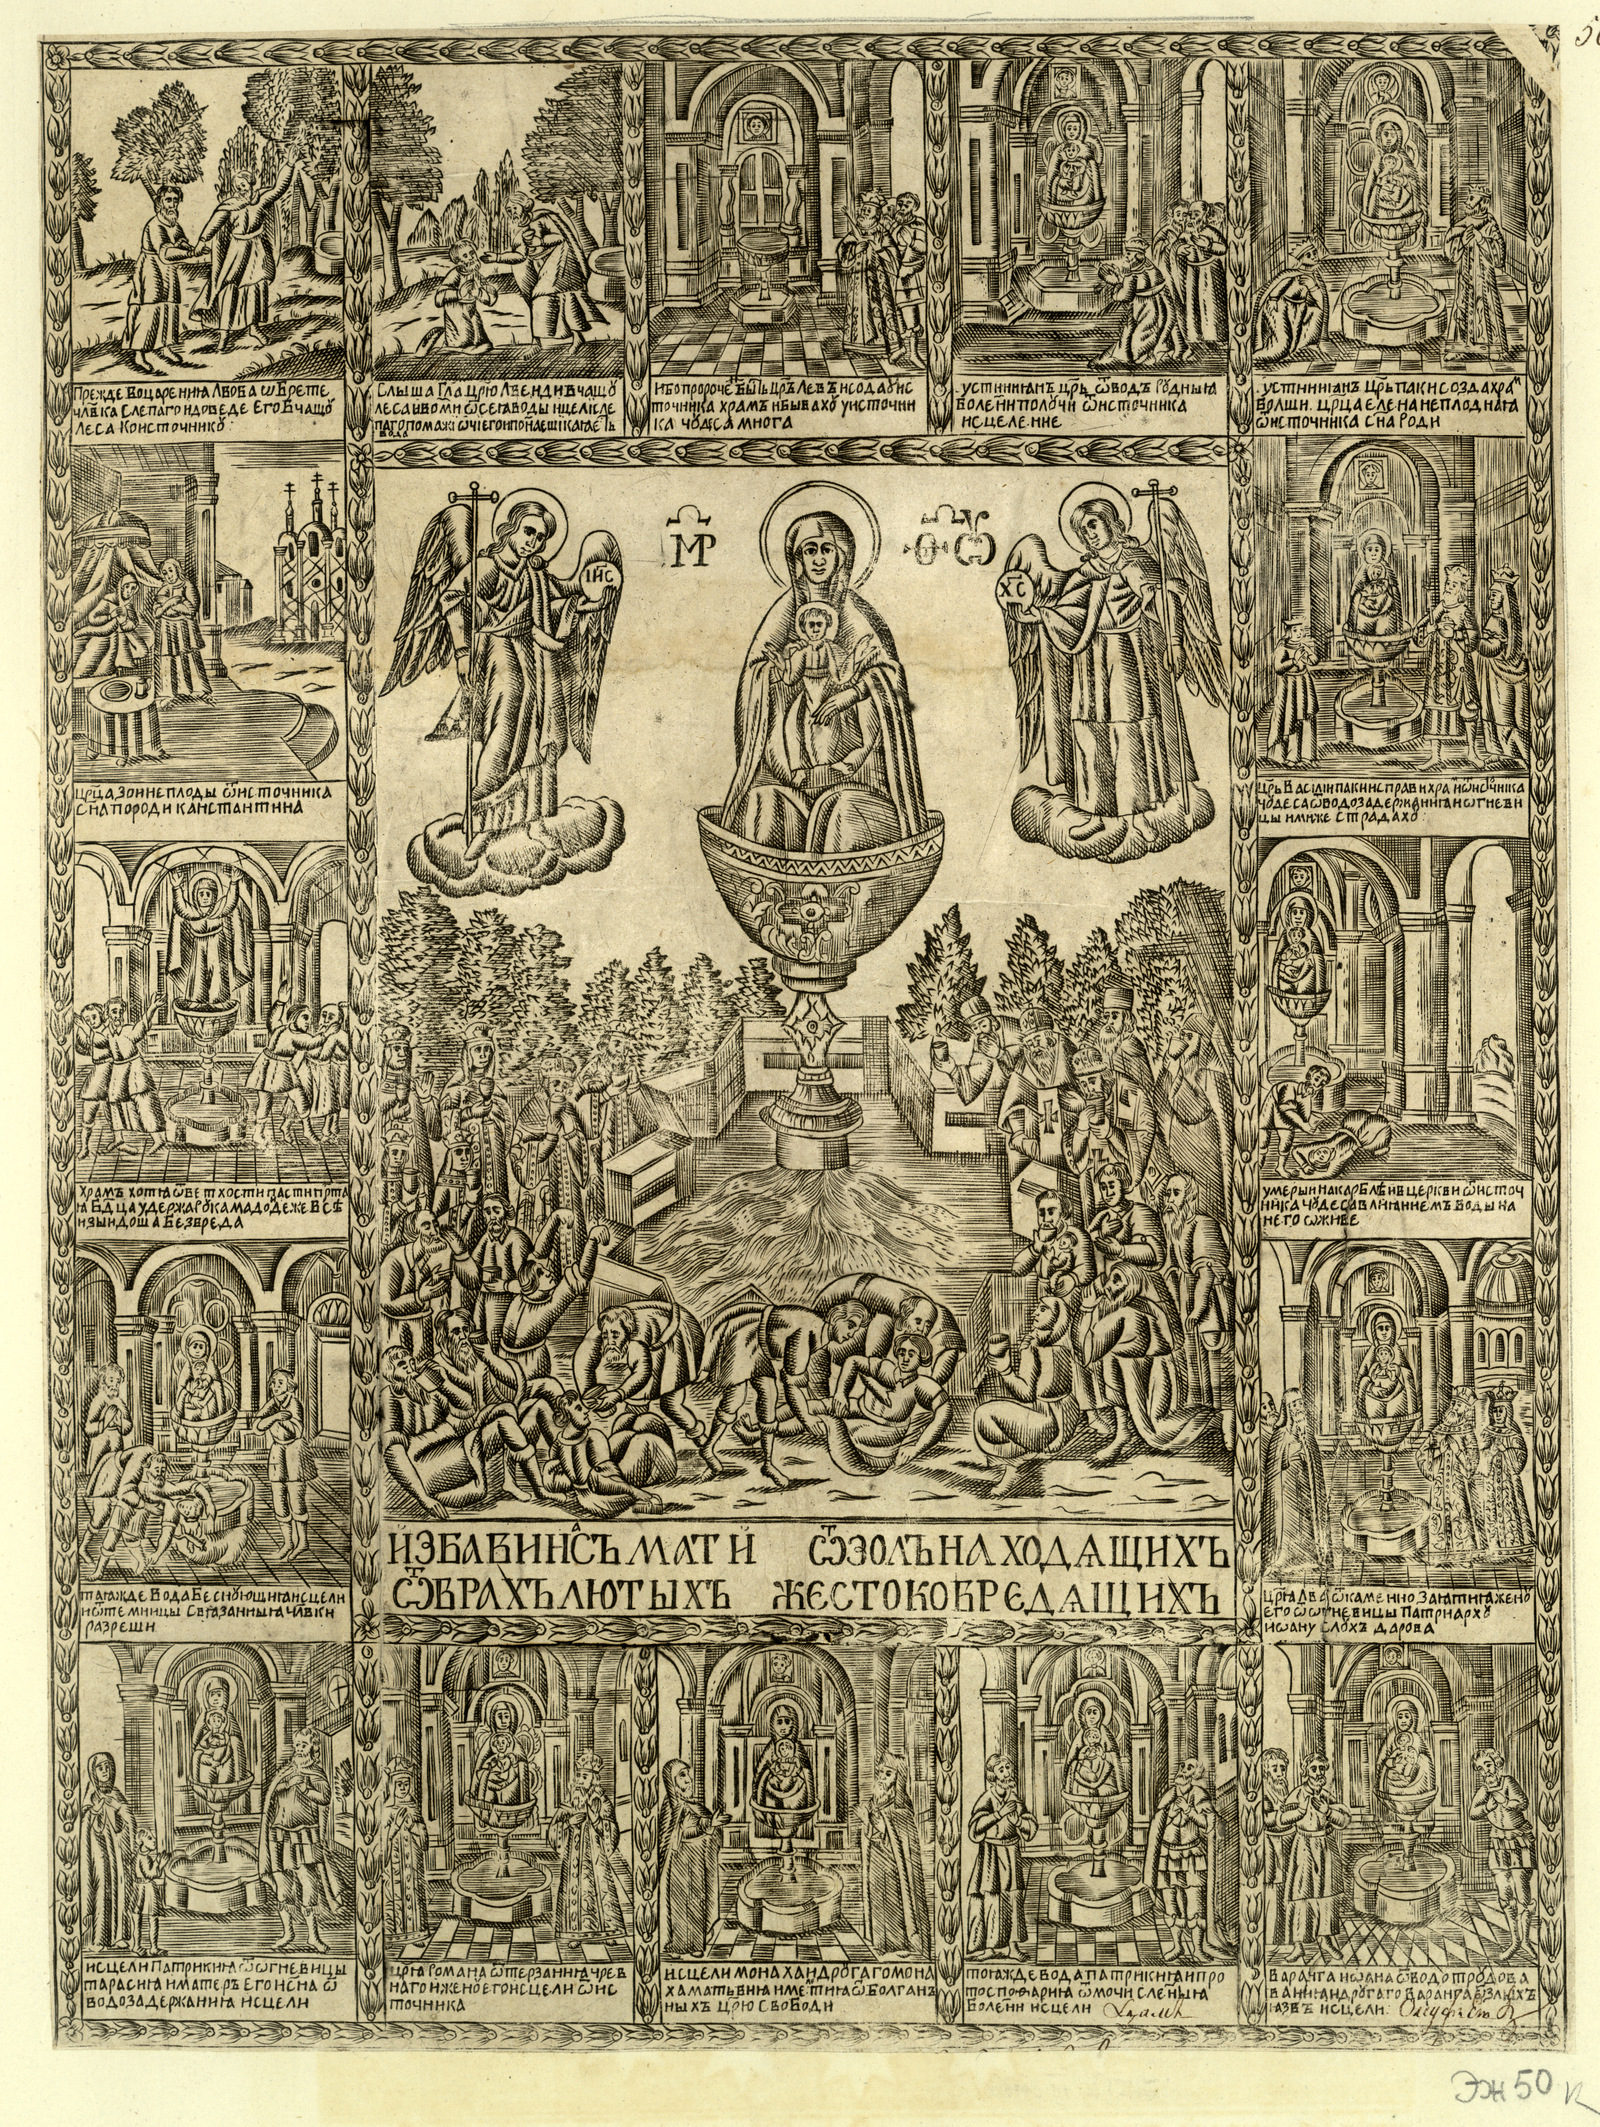 прежде воцарения Лвова ѡбрете
члв҃ка слепаго и доведе его в чащꙋ
леса к источникꙋ:
слыша гла црю Лве вниди в чащꙋ
леса и возми ѿ сея воды и цели сле
паго помажи ѡчи его и
вода
ибо пророче бысть црь Лев и созда у ис
точника храмъ и бывахꙋ у источни
ка чꙋдеса многа
устиниѧнъ црь ѿ водъ рꙋдныѧ
болезни полꙋчи ѿ источника
исцеление
устиниѧнъ црь паки созда храⷨ
болши. црца елена неплоднаѧ
ѿ источника сна роди
МР ѲѠУ
ІИС
ХС
црца зои неплоды ѿ источника
сна породи канстантина
црь Василии паки исправи храⷨ источника
чꙋдеса ѡ водозадержании и ѡ гневи
цы имиже страдахꙋ:
храмъ хотѧ ѿ ветхости пасти
бдца удержа рꙋкама дондеже всѣ
изыидоша без вреда
умерыи на караблѣ и в церкви ѿ источ
ника чꙋдесъ влиѧниемъ воды на
него ѡживе
таѧжде вода беснꙋющиѧ исцели
и ѿ темницы связанныѧ члвки
разреши
црѧ Лва ѿ каменно заѧтиѧ женꙋ
его ѿ огневицы патриархꙋ
иѡанꙋ слꙋхъ дарова
ИЗБАВИ НАСЪ МАТИ ѾЗОЛЪ НАХОДЯЩИХЪ
ѾВРАХЪ ЛЮТЫХЪ ЖЕСТОКО ВРЕДЯЩИХЪ
исцели патрикиѧ ѿ огневицы
тарасиѧ и матерь его и сна ѿ
водозадержаниѧ исцели
црѧ романа ѿ терзаниѧ чрев
наго и женꙋ его исцели ѿ ис
точника
исцели монаха и дрꙋгаго мона
ха матѳиѧ и мелетиѧ ѿ болган
ныхъ црю свободи
тоѧжде вода патрикиѧ и про
тоспофариѧ ѿ мочи сленыѧ
болезни исцели
варанга иѡана ѿ водотрꙋдова
ваниѧ и дрꙋгаго варанга ѿ злыхъ
язвъ исцели:
Эж 50